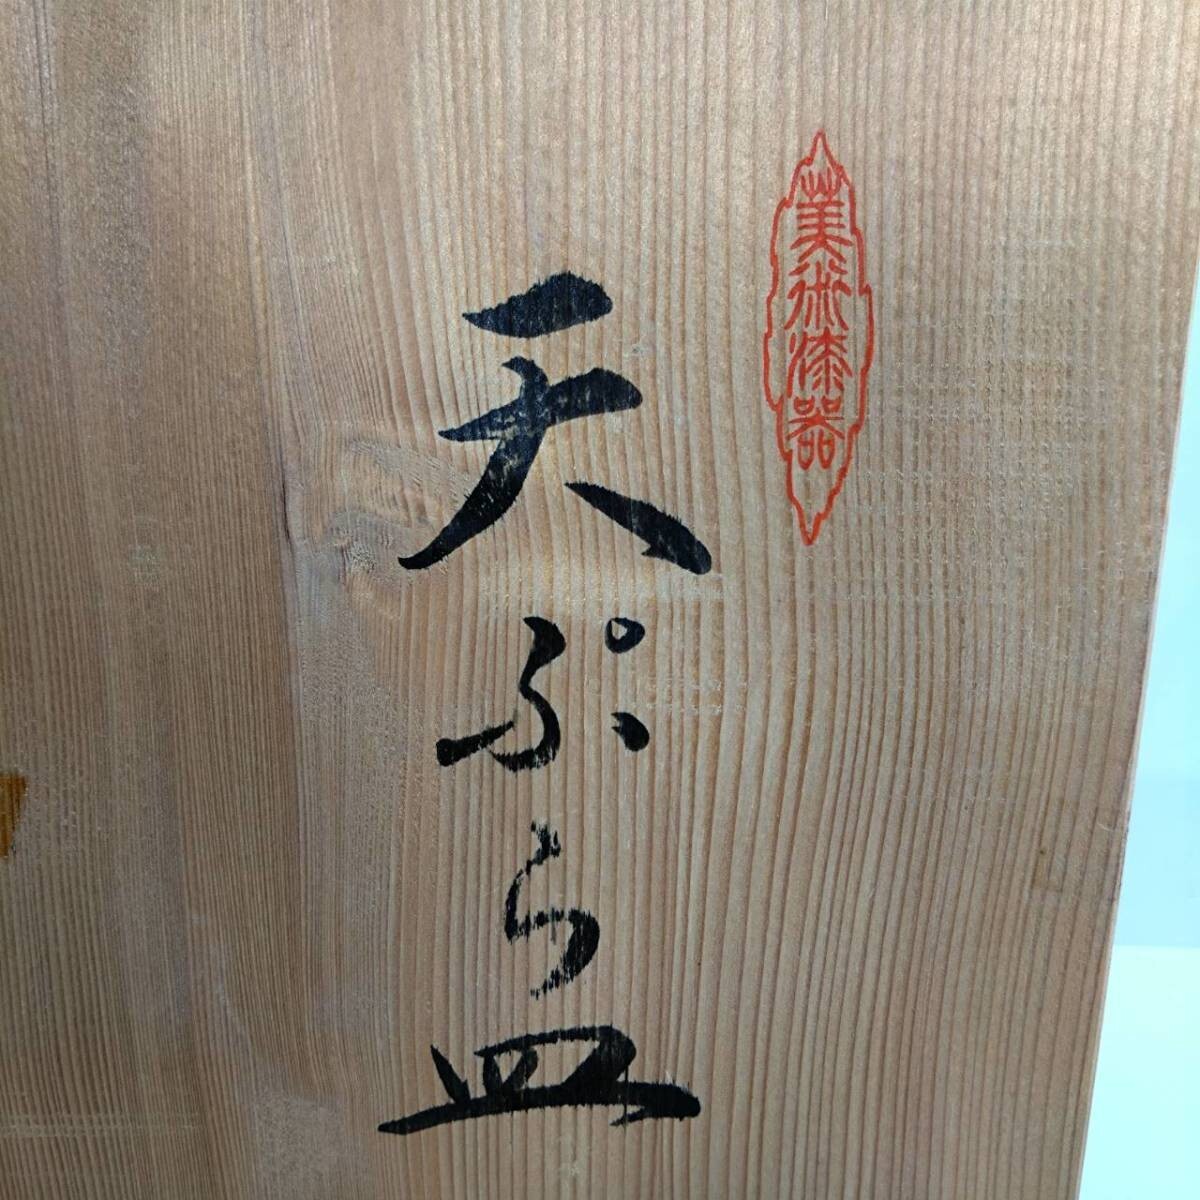 美術漆器
天ぷら皿